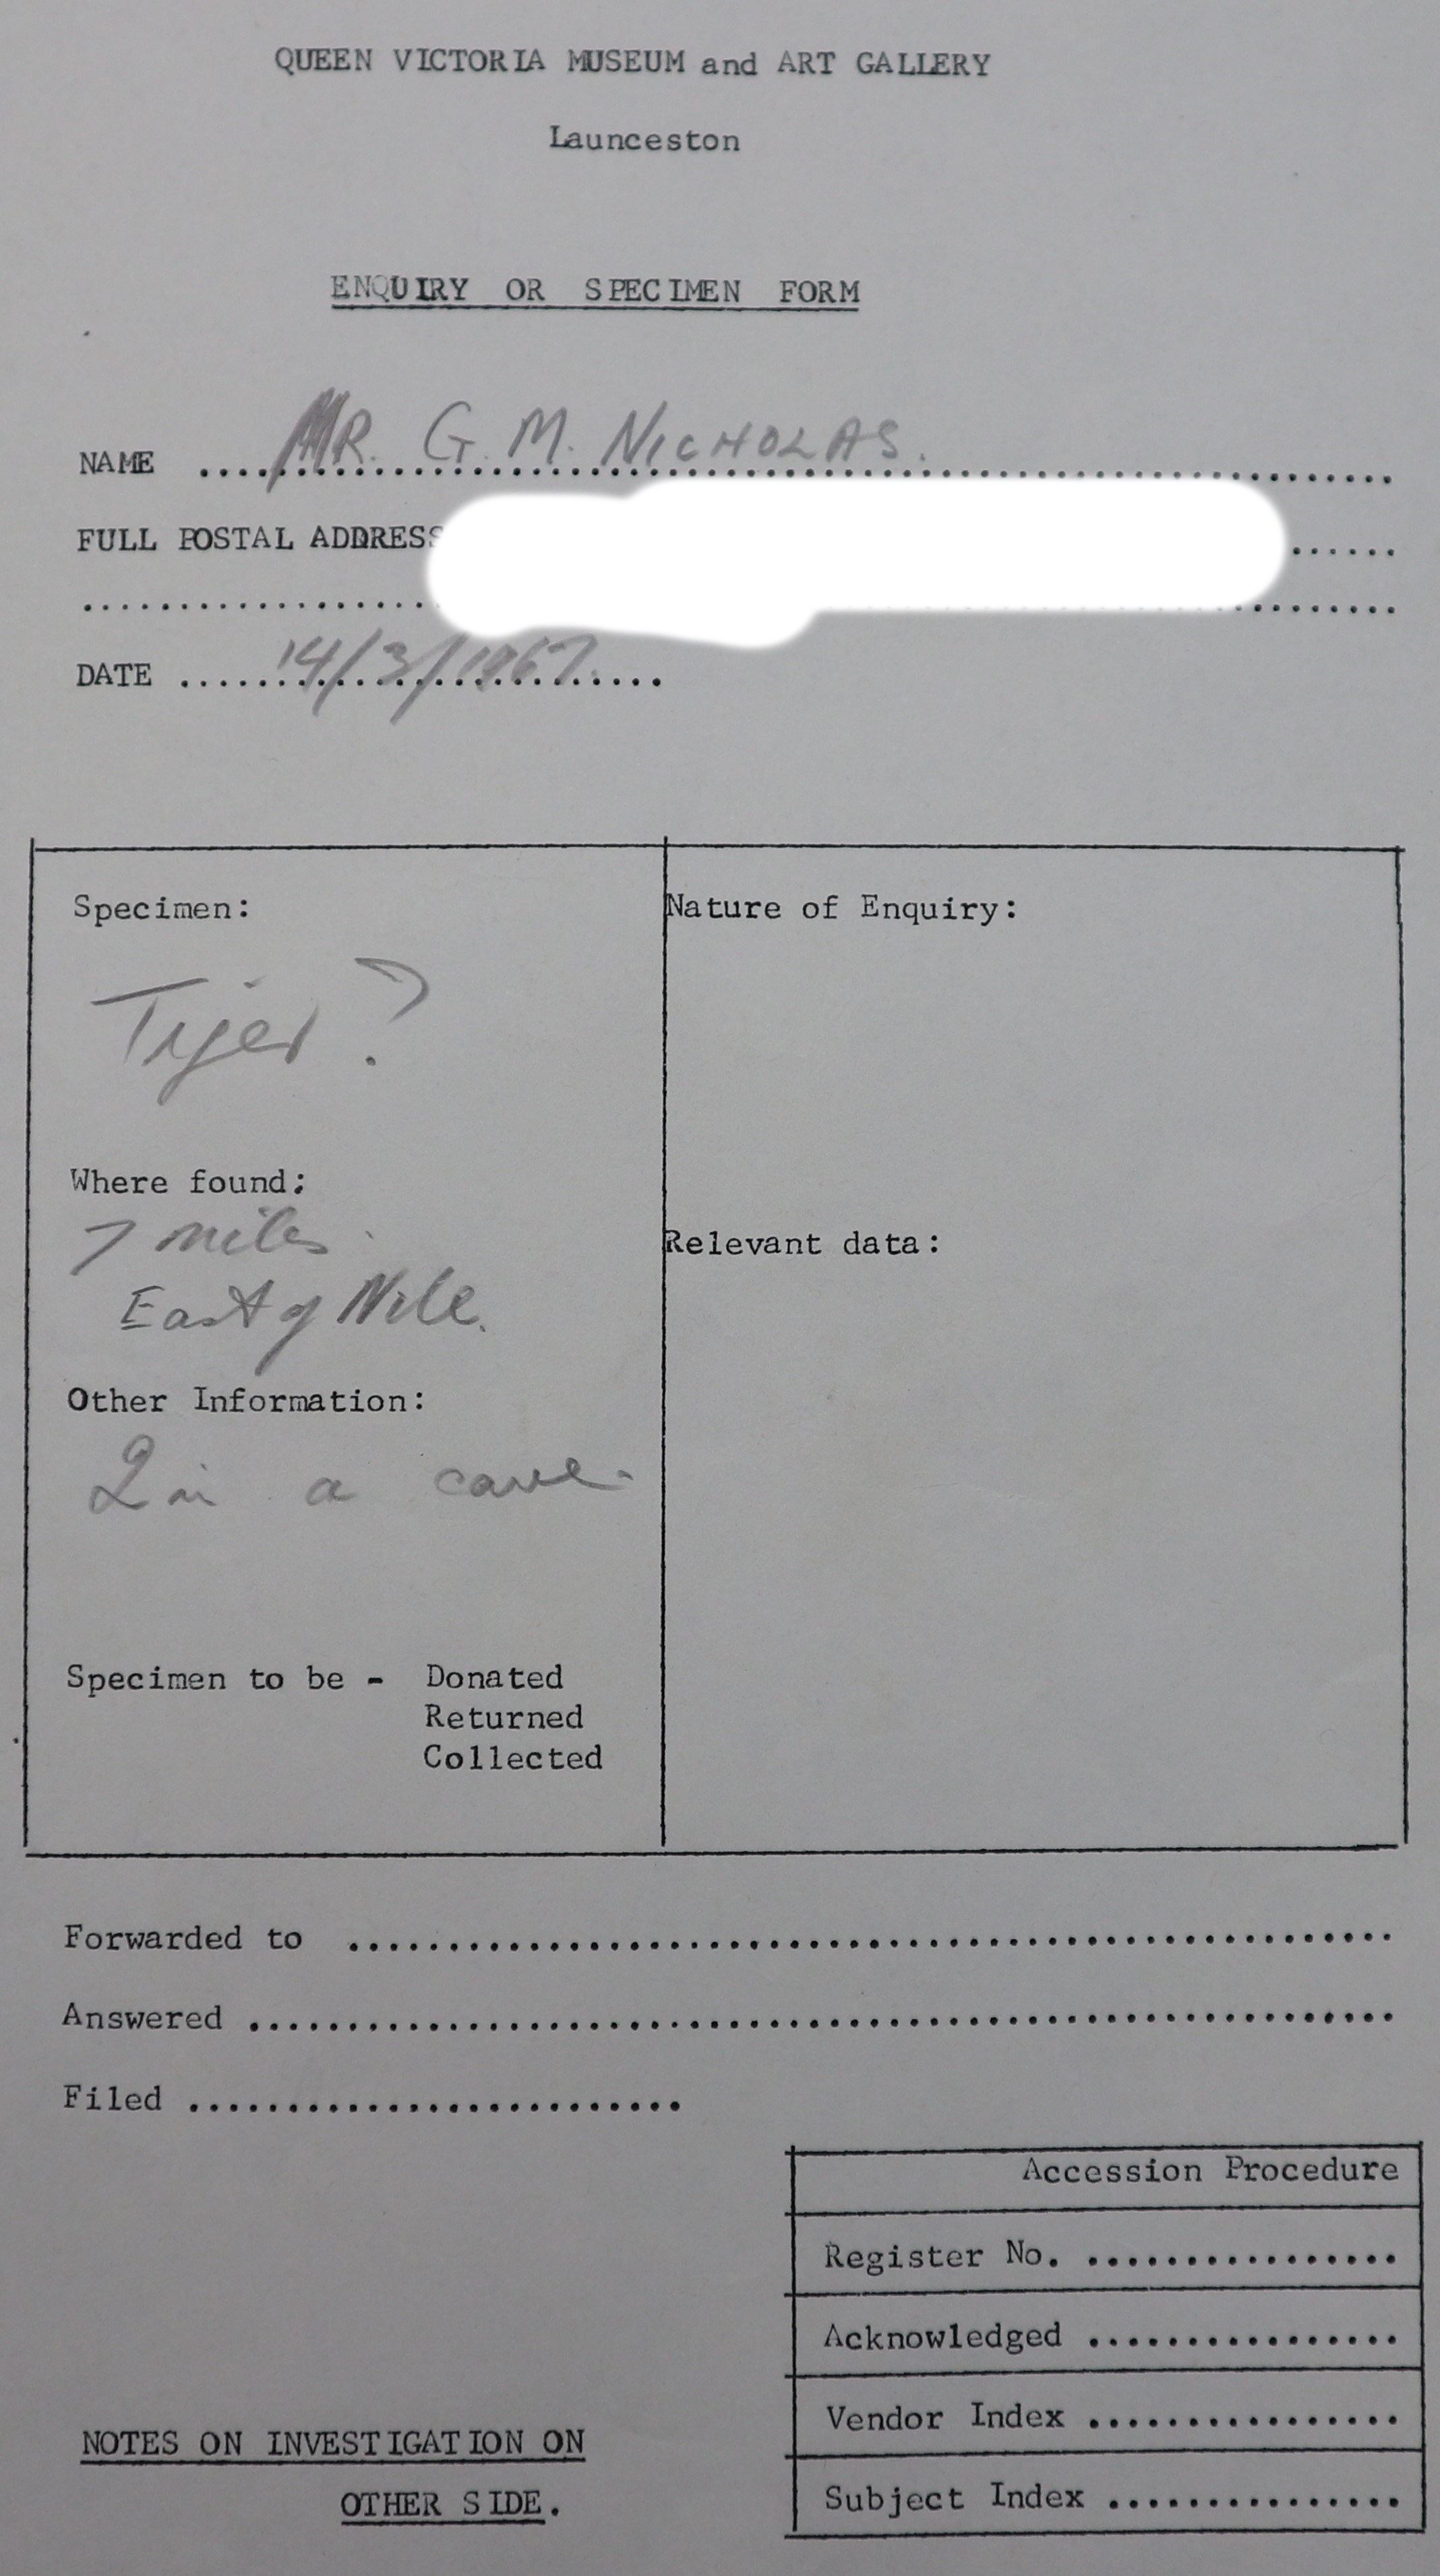 QUEEN VICTORIA MUSEUM and ART GALLERY
Launceston
ENQUIRY OR SPECIMEN FORM
NAME ........ MR. G. M. NICHOLAS. ........
FULL POSTAL ADDRESS ......
........
DATE ...... 14/3/1967 ......
Specimen:
Tiger ?
Where found:
7 miles
East of Nile.
Other Information:
2 in a cave.
Specimen to be - Donated
Returned
Collected
Nature of Enquiry:
Relevant data:
Forwarded to ........
Answered ........
Filed ........
Accession Procedure
Register No. ........
Acknowledged ........
Vendor Index ........
Subject Index ........
NOTES ON INVESTIGATION ON
OTHER SIDE.